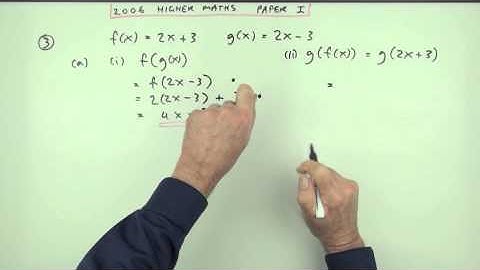 2006 HIGHER MATHS PAPER I
③ f(x) = 2x + 3 g(x) = 2x - 3
(a) (i) f(g(x))
= f(2x - 3)
= 2(2x - 3) +
= 4x -
(ii) g(f(x)) = g(2x + 3)
=